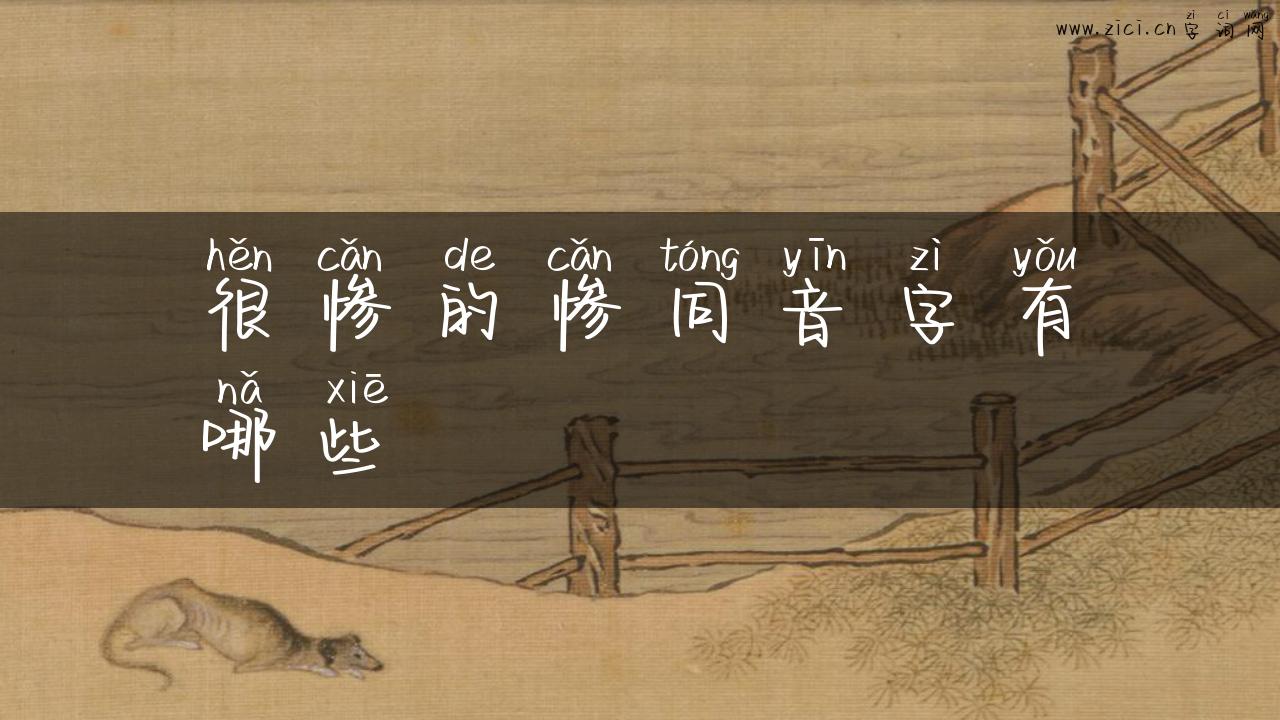 zì cí wǎng
www.zici.cn字词网
hěn cǎn de cǎn tóng yīn zì yǒu
很惨的惨同音字有
nǎ xiē
哪些